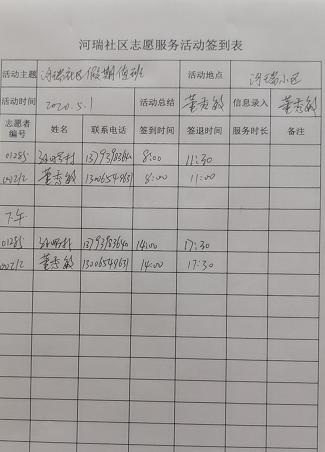 河瑞社区志愿服务活动签到表
活动主题 河瑞社区假期值班 活动地点 河瑞小区
活动时间 2020.5.1 活动总结 董秀敏 信息录入 董秀敏
志愿者编号 姓名 联系电话 签到时间 签退时间 服务时长 备注
01285 8:00 11:30
00212 董秀敏 13006549631 8:00 11:00
下午
01285 14:00 17:30
00212 董秀敏 13006549631 14:00 17:30